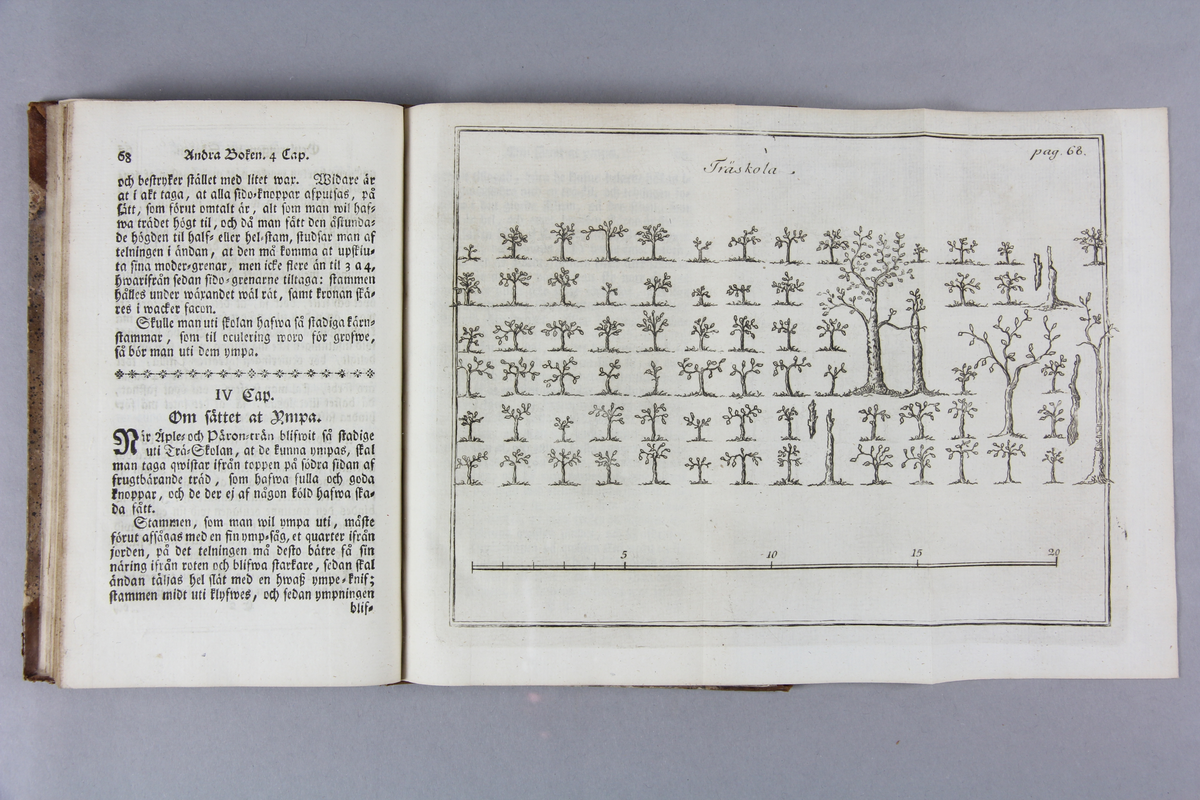 68 Andra Boken. 4 Cap.
och bestryker stället med litet war. Widare är
at i akt taga, at alla sido-knoppar afputsas, på
sätt, som förut omtalt är, alt som man wil haf-
wa trädet högt til, och då man fått den åstunda-
de högden til half- eller hel-stam, studsar man af
telningen i ändan, at den må komma at upskiu-
ta sina moder-grenar, men icke flere än til 3 a 4,
hwarifrån sedan sido-grenarne tiltaga: stammen
hålles under wärandet wäl rät, samt kronan skä-
res i wacker facon.
Skulle man uti skolan hafwa så stadiga kärn-
stammar, som til oculering woro för grofwe,
så bör man uti dem ympa.
IV Cap.
Om sättet at Ympa.
När Äple- och Päron-trän blifwit så stadige
uti Trä-Skolan, at de kunna ympas, skal
man taga qwistar ifrån toppen på södra sidan af
frugtbärande träd, som hafwa fulla och goda
knoppar, och de der ej af någon köld hafwa ska-
da fått.
Stammen, som man wil ympa uti, måste
förut afsågas med en fin ymp-såg, et quarter ifrån
jorden, på det telningen må desto bätre få sin
näring ifrån roten och blifwa starkare, sedan skal
ändan täljas hel slät med en hwaß ympe-knif;
stammen midt uti klyfwes, och sedan ympningen
blif-
pag. 68.
Träskola.
5 10 15 20